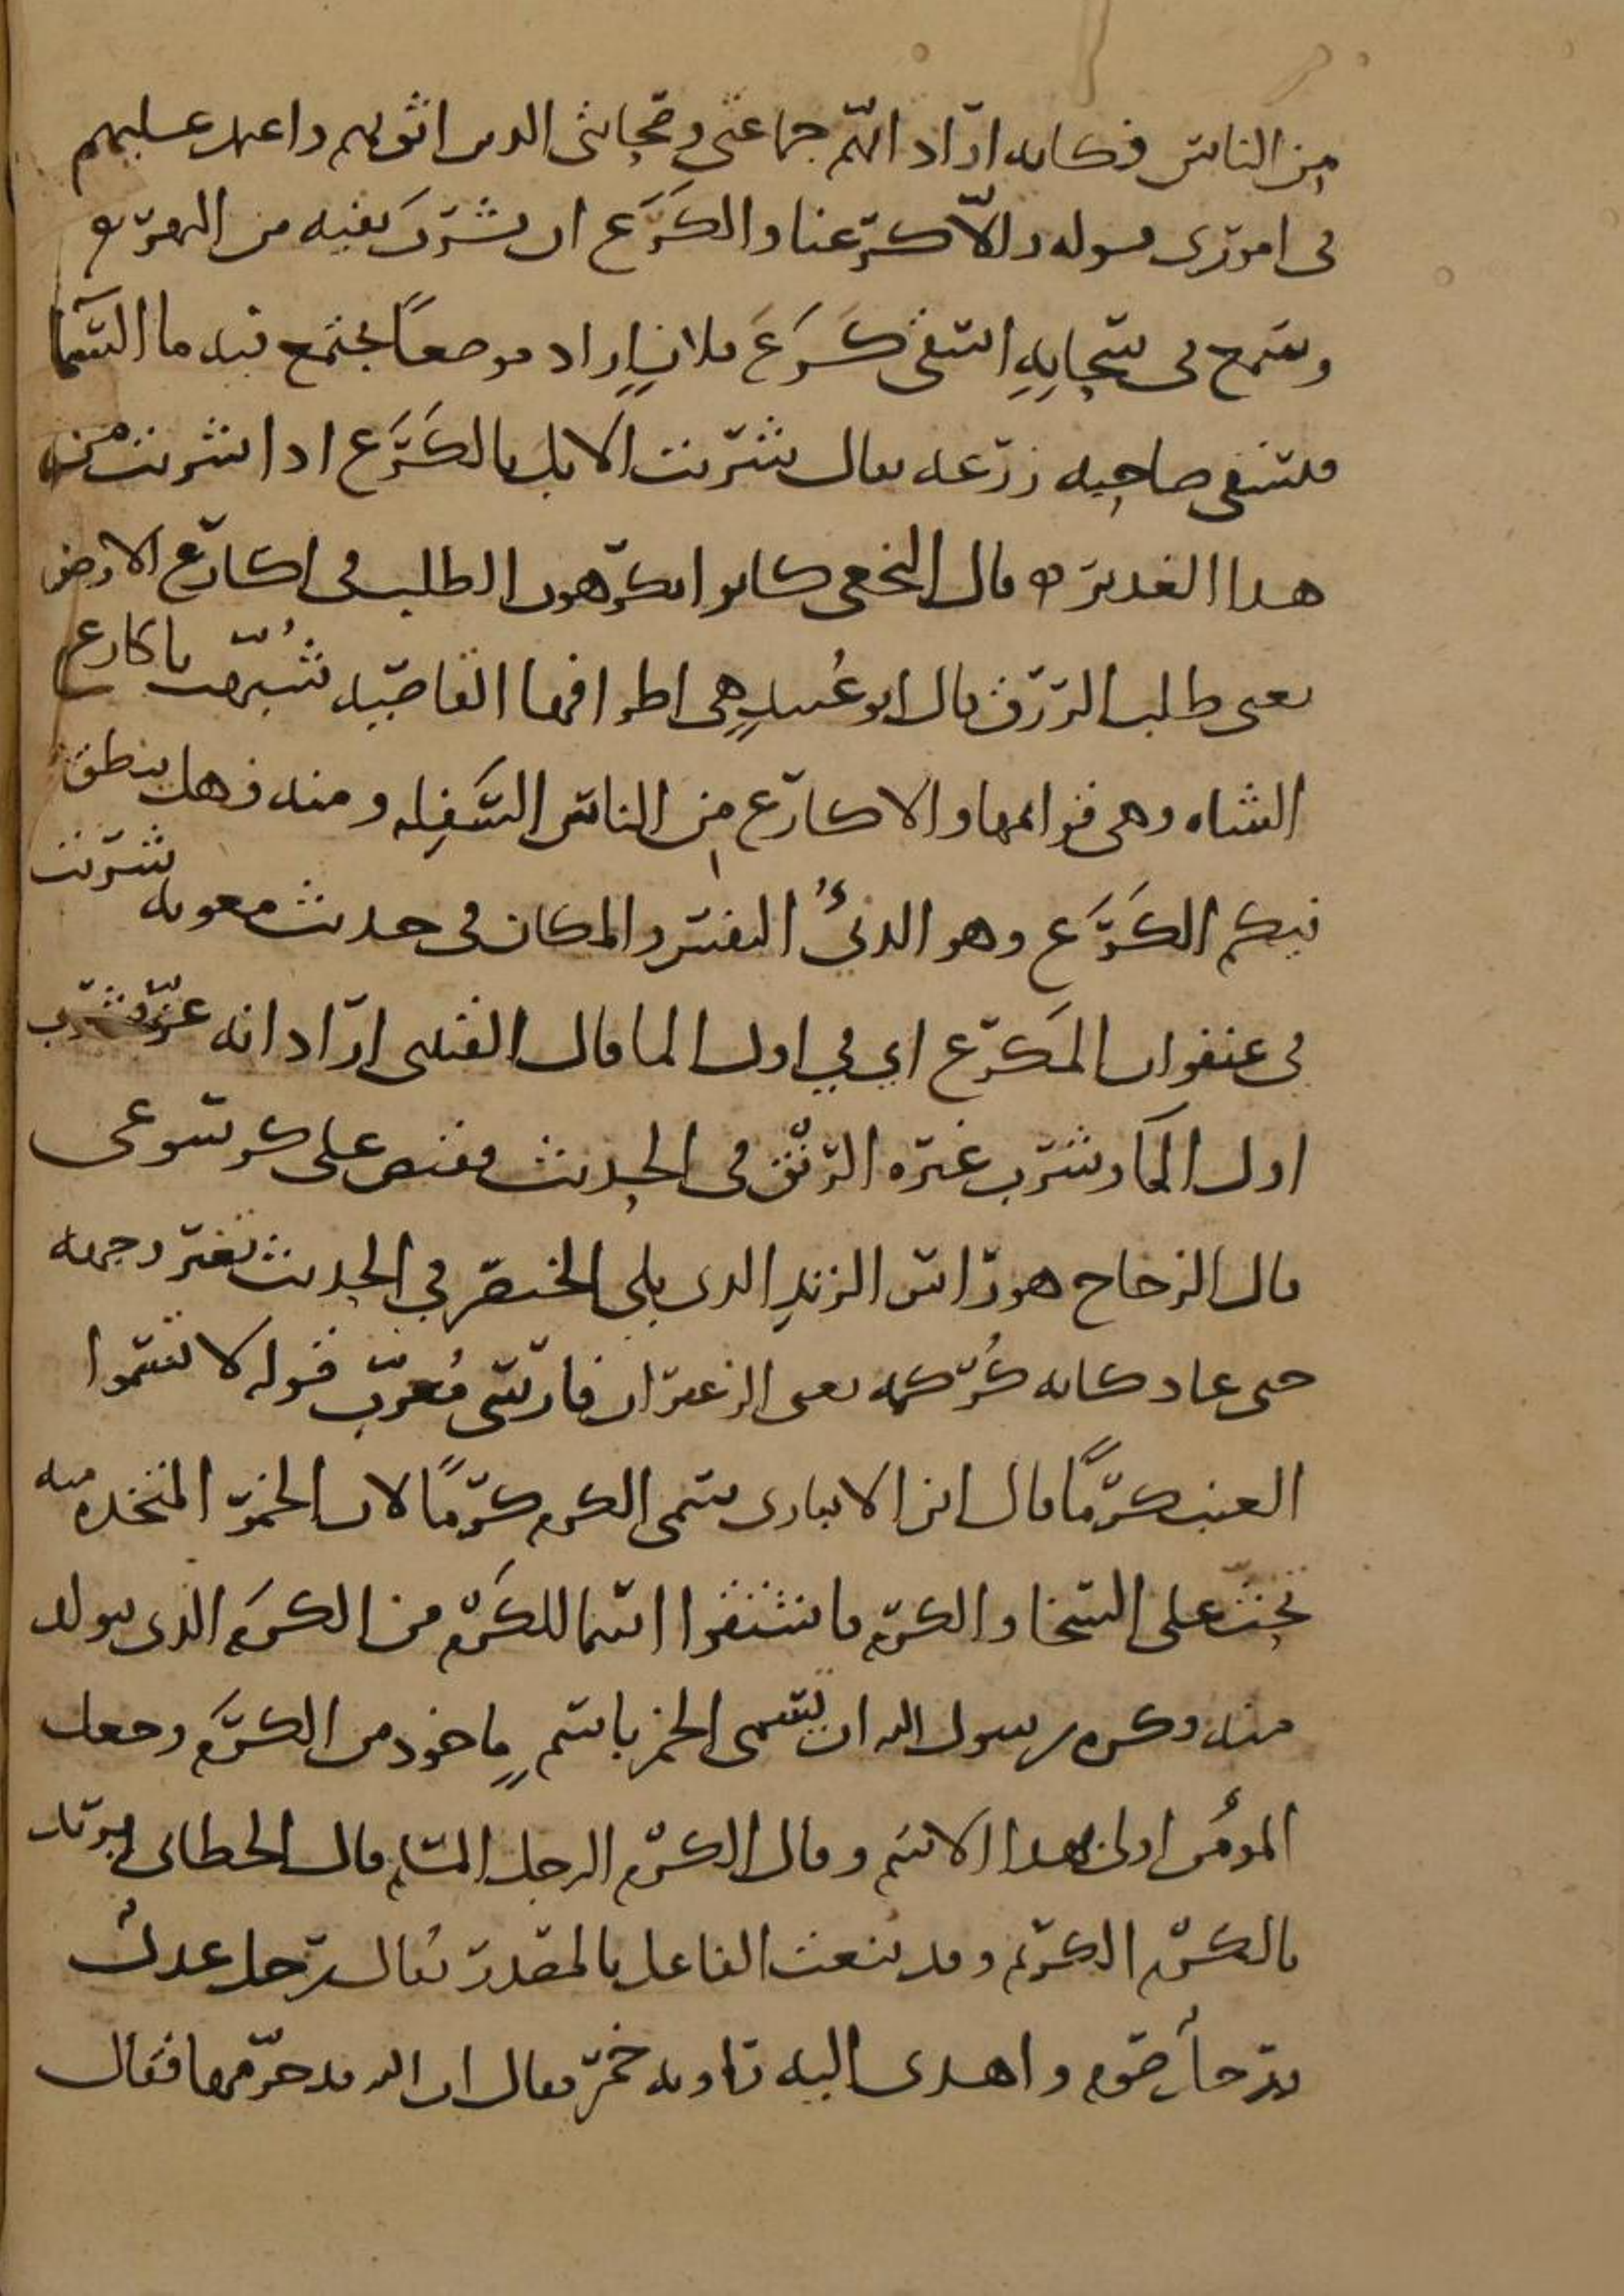 من الناس فكانه اراد انهم جماعتي وصحابتي الذين اثق بهم واعتمد عليهم
في اموري قوله والا كرعنا والكرع ان يشرب بفيه من النهر ه
وسمع في سحابه اسقى كرع فلان اراد موضعا يجتمع فيه ما السما
فيسقي صاحبه زرعه يقال شربت الابل بالكرع اذا شربت من
هذا الغدير ه قال النخعي كانوا يكرهون الطلب في اكارع الارض
يعني طلب الرزق قال ابو عبيد هي اطرافها القاصيه شبهت باكارع
الشاه وهي قوايمها والاكارع من الناس السفله ومنه فهل ينطق
فيكم الكرع وهو الدنئ النفس والمكان في حديث معويه شربت
في عنفوان المكرع اي في اول الما قال القتبي اراد انه عز فشرب
اول الما وشرب غيره الرنق في الحديث فقبض على كرسوعي
قال الزجاج هو راس الزند الذي يلي الخنصر في الحديث تغير وجهه
حتى عاد كانه كركمه يعني الزعفران فارسي معرب قوله لا تسموا
العنب كرما قال ابن الانباري سمي الكرم كرما لان الخمر المتخذه منه
تحث على السخا والكرم فاشتقوا اسما للكرم من الكرم الذي يتولد
منه وكره رسول الله ان يسمى الخمر باسم ماخوذ من الكرم وجعل
المؤمن اولى بهذا الاسم وقال الكرم الرجل المسلم قال الخطابي يريد
بالكرم الكريم وقد ينعت الفاعل بالمصدر يقال رجل عدل
ورجل صوم واهدى اليه راويه خمر فقال ان الله قد حرمها فقال